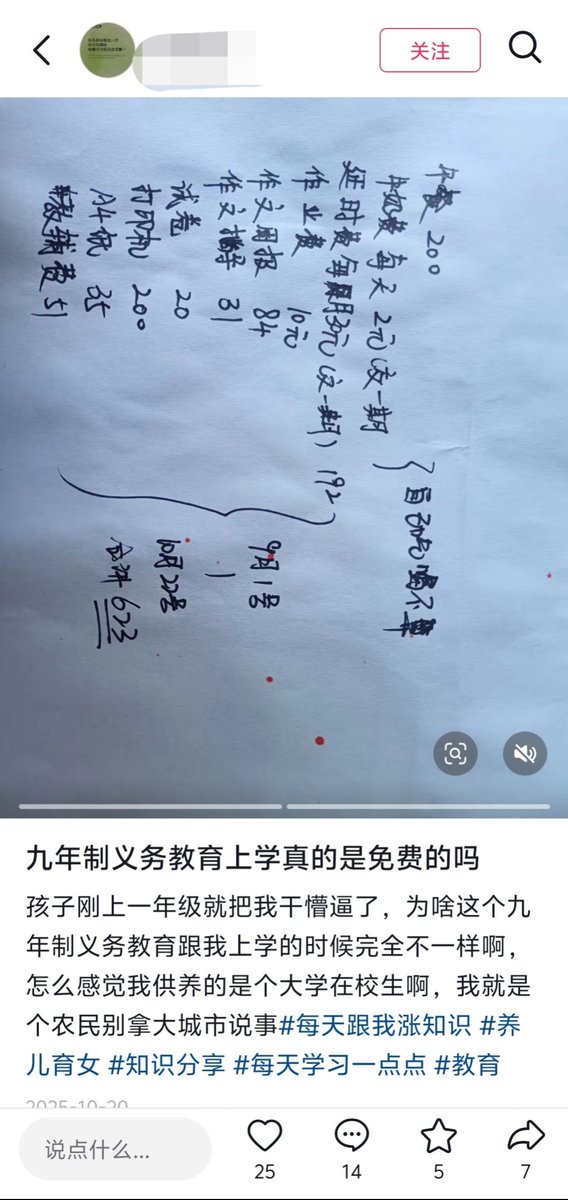 关注
午费 200
牛奶费 每天 2元(交一期
自己吃喝不算
延时费每期3元(交一期) 192
作业费 10元
作文周报 84
作文指导 31
试卷 20
打印机 200
A4纸 35
教辅费 51
9月1号
10月22号
合计 623
九年制义务教育上学真的是免费的吗
孩子刚上一年级就把我干懵逼了，为啥这个九
年制义务教育跟我上学的时候完全不一样啊，
怎么感觉我供养的是个大学在校生啊，我就是
个农民别拿大城市说事#每天跟我涨知识 #养
儿育女 #知识分享 #每天学习一点点 #教育
2025-10-20
说点什么...
25
14
5
7